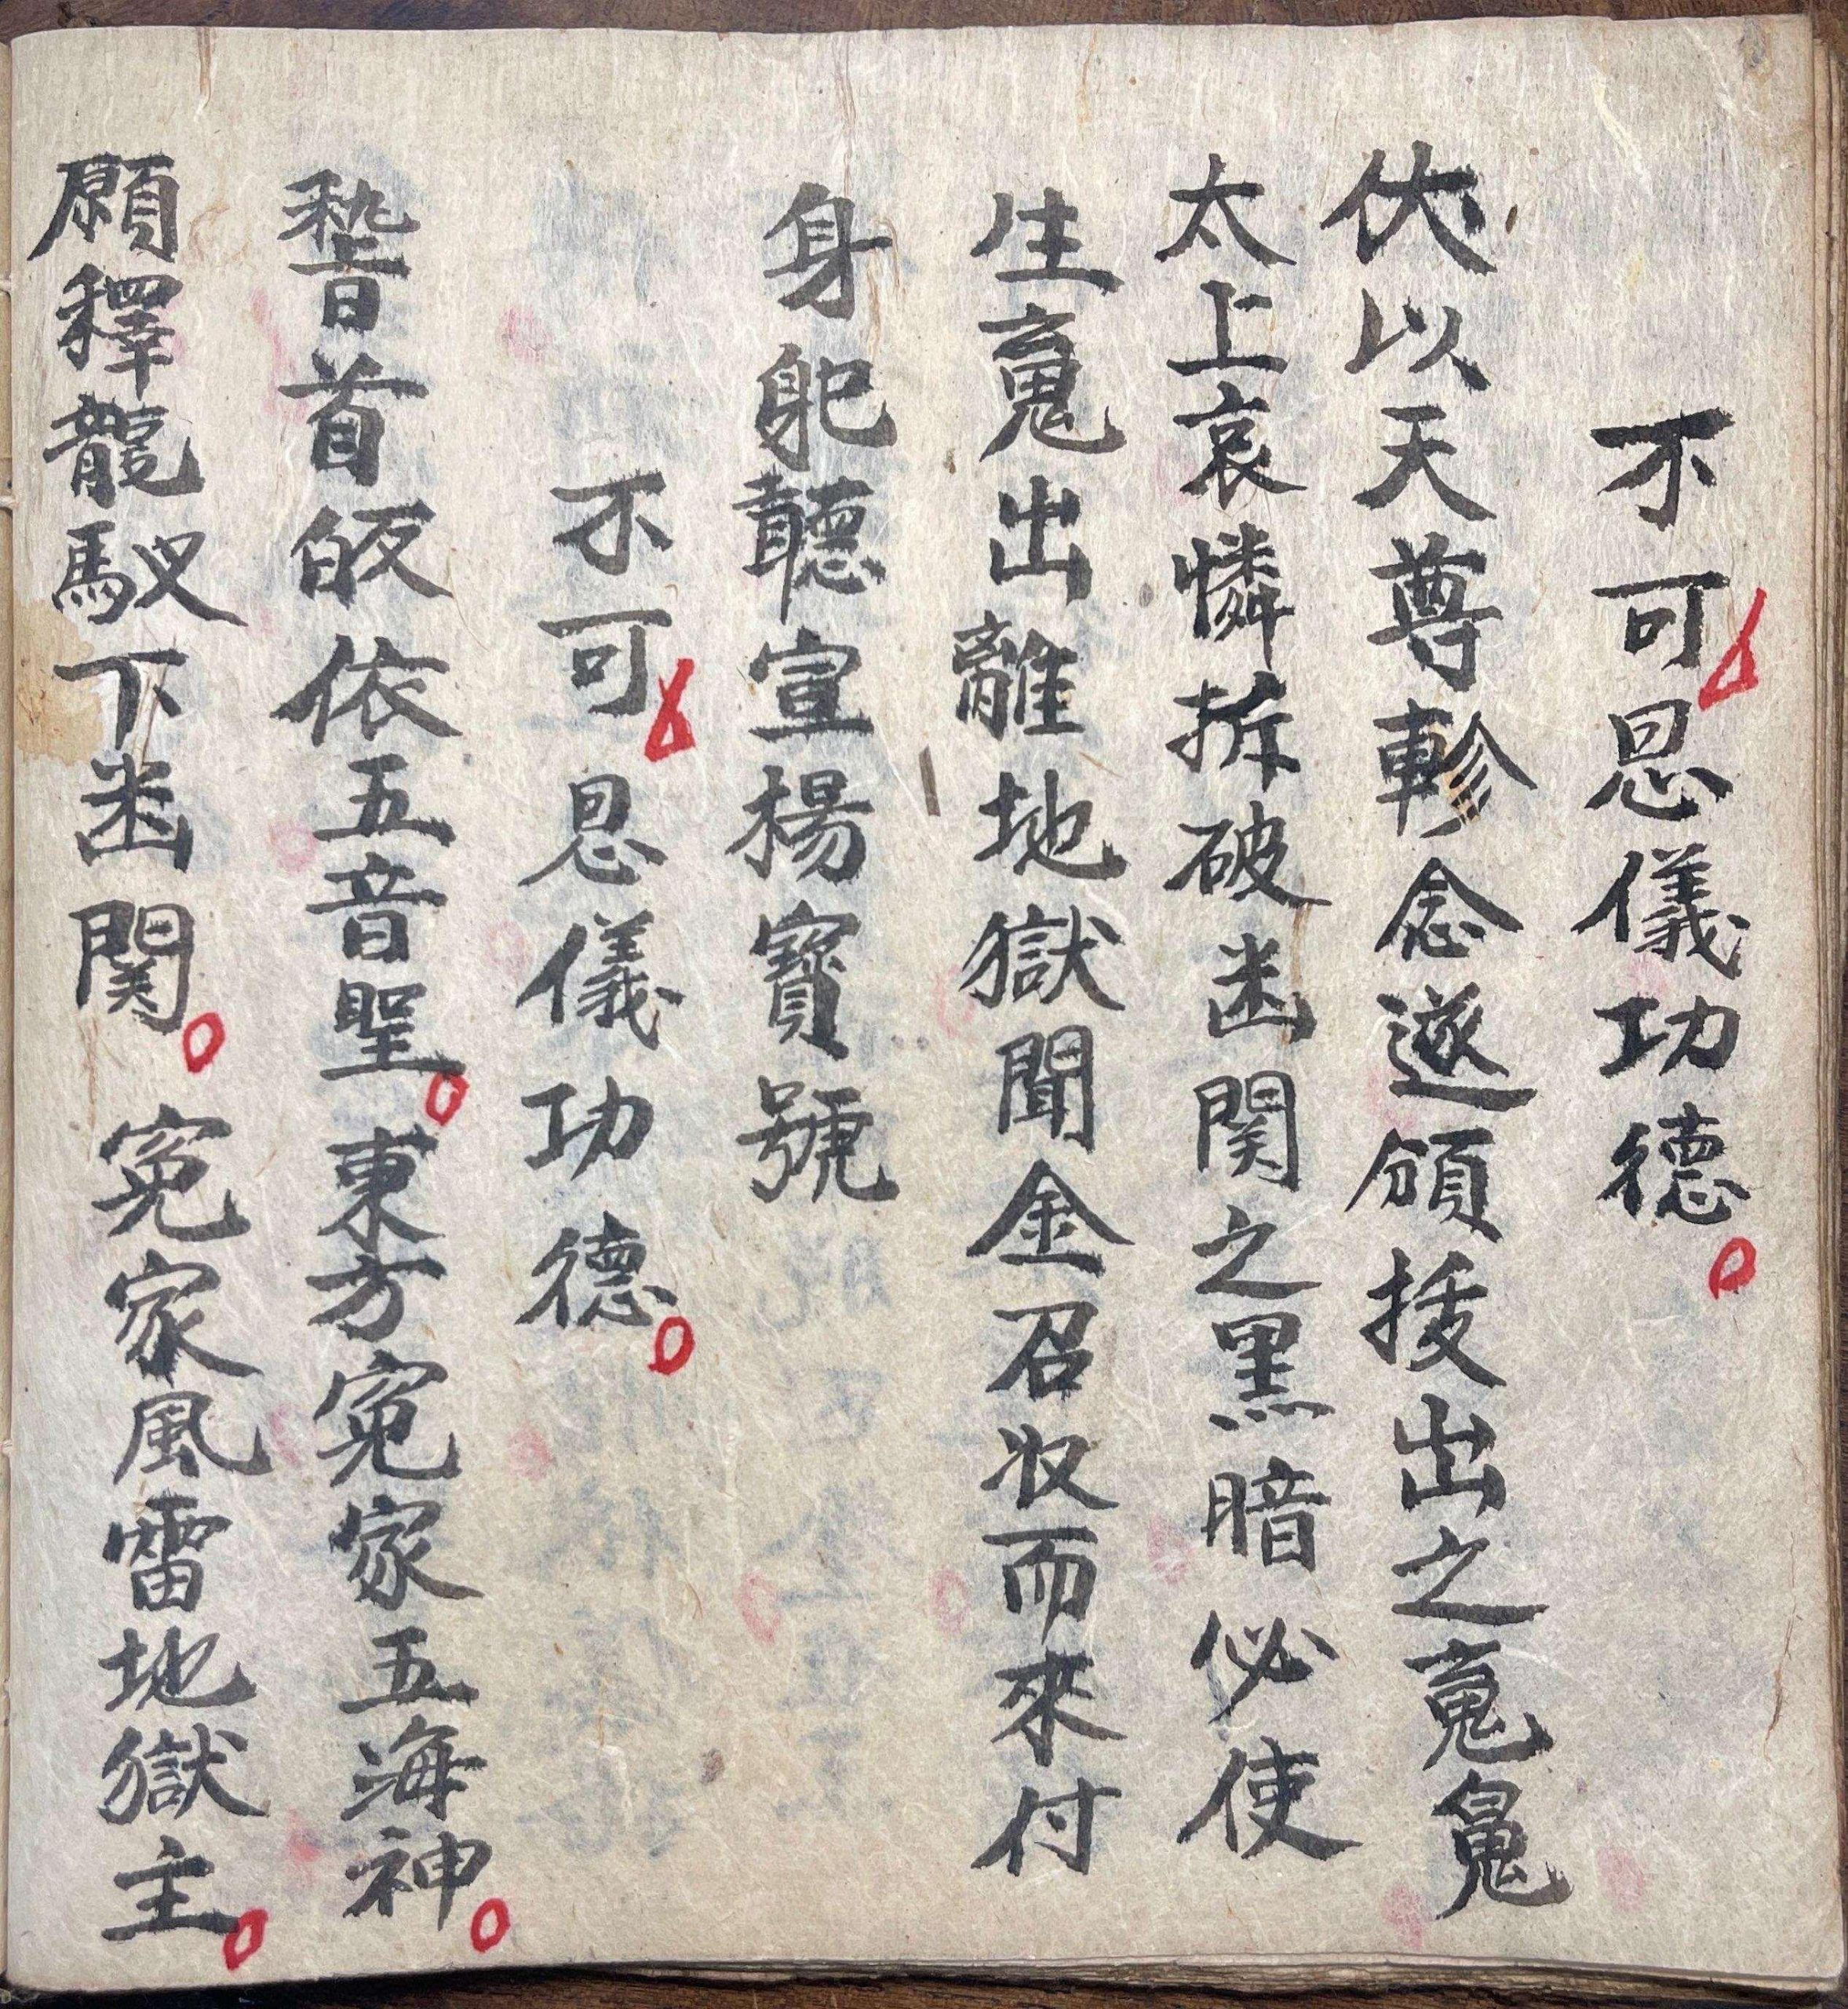 不可思儀功德。
伏以天尊軫念遂頒拔出之䰟鬼
太上哀憐拆破凼関之黒暗必使
生䰟出離地獄聞金召収而來付
身躰聽宣楊寳號
不可思儀功德。
稽首皈依五音聖。東方寃家五海神。
願釋龍馭下凼関。寃家風雷地獄主。